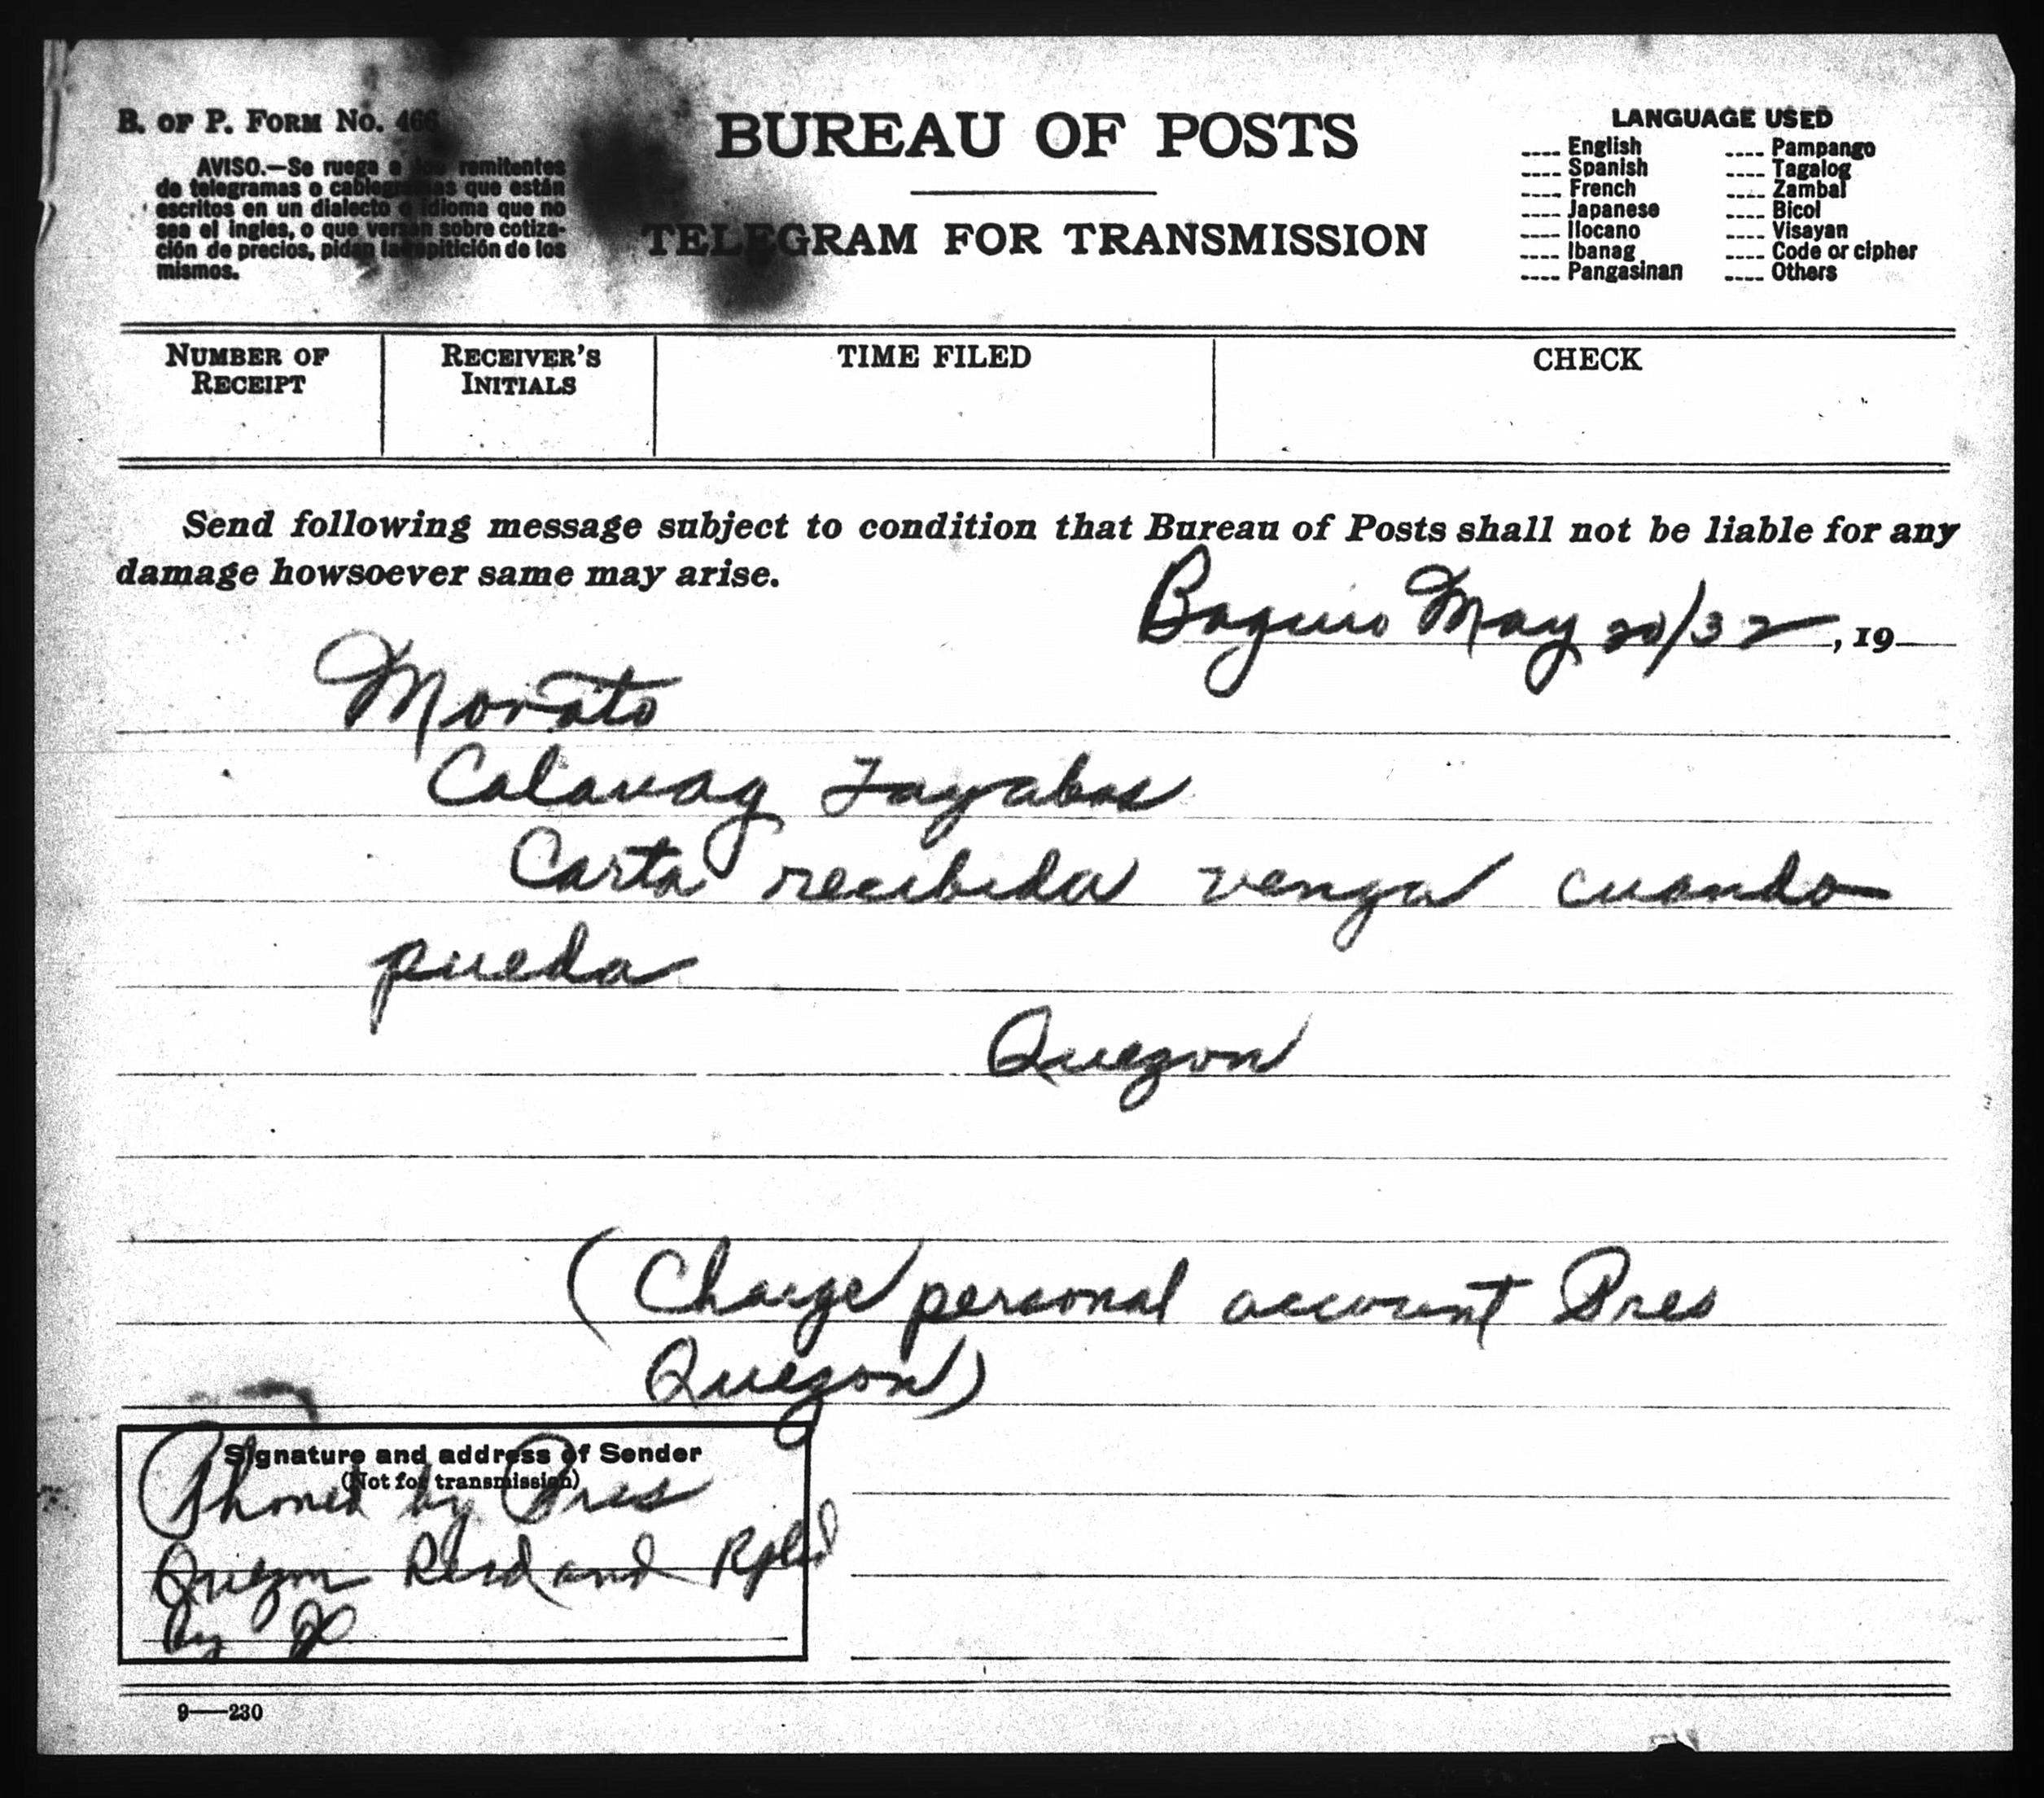 B. OF P. FORM NO. 466
AVISO.—Se ruega a los remitentes
de telegramas o cablegramas que están
escritos en un dialecto o idioma que no
sea el ingles, o que versan sobre cotiza-
ción de precios, pidan la repitición de los
mismos.
BUREAU OF POSTS
TELEGRAM FOR TRANSMISSION
LANGUAGE USED
---- English ---- Pampango
---- Spanish ---- Tagalog
---- French ---- Zambal
---- Japanese ---- Bicol
---- Ilocano ---- Visayan
---- Ibanag ---- Code or cipher
---- Pangasinan ---- Others
NUMBER OF
RECEIPT
RECEIVER'S
INITIALS
TIME FILED
CHECK
Send following message subject to condition that Bureau of Posts shall not be liable for any
damage howsoever same may arise.
Baguio May 20/32, 19
Morato
Calauag Tayabas
Carta recibida venga cuando
pueda
Quezon
(Charge personal account Pres
Quezon)
Signature and address of Sender
(Not for transmission)
Phoned by Pres
Quezon and
by
9—230